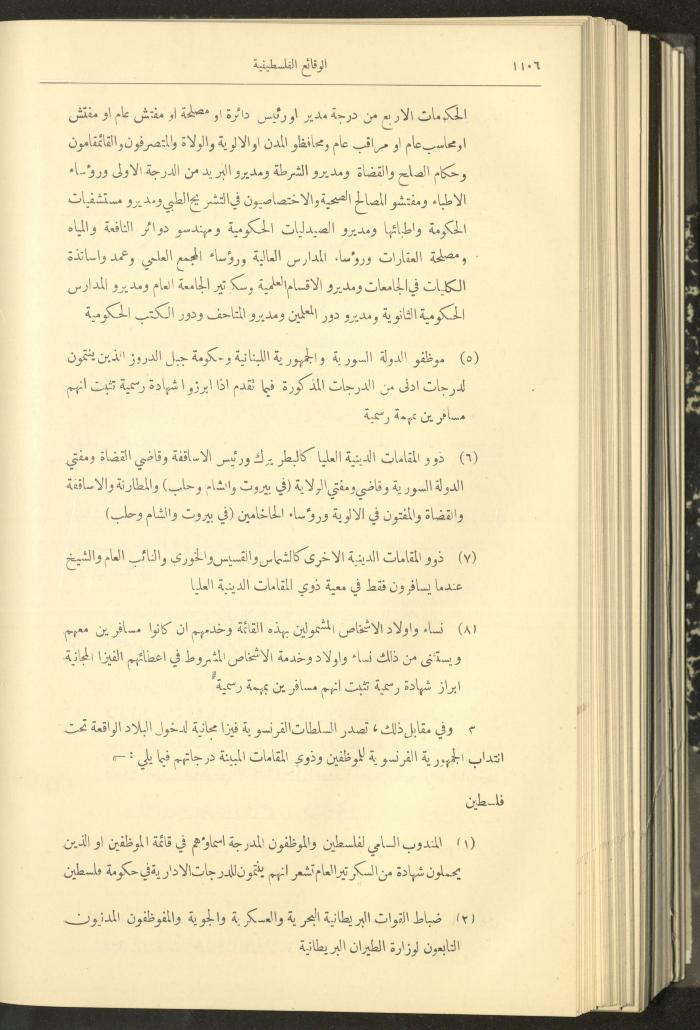 ١١٠٦
الوقائع الفلسطينية
الحكومات الاربع من درجة مدير او رئيس دائرة او مصلحة او مفتش عام او مفتش
او محاسب عام او مراقب عام ومحافظو المدن او الالوية والولاة والمتصرفون والقائمقامون
وحكام الصلح والقضاة ومديرو الشرطة ومديرو البريد من الدرجة الاولى ورؤساء
الاطباء ومفتشو المصالح الصحية والاختصاصيون في التشريح الطبي ومديرو مستشفيات
الحكومة واطبائها ومديرو الصيدليات الحكومية ومهندسو دوائر النافعة والمياه
ومصلحة العقارات ورؤساء المدارس العالية ورؤساء المجمع العلمي وعمد واساتذة
الكليات في الجامعات ومديرو الاقسام العلمية وسكرتير الجامعة العام ومديرو المدارس
الحكومية الثانوية ومديرو دور المعلمين ومديرو المتاحف ودور الكتب الحكومية
(٥) موظفو الدولة السورية والجمهورية اللبنانية وحكومة جبل الدروز الذين ينتمون
لدرجات ادنى من الدرجات المذكورة فيما تقدم اذا ابرزوا شهادة رسمية تثبت انهم
مسافرين بمهمة رسمية
(٦) ذوو المقامات الدينية العليا كالبطريرك ورئيس الاساقفة وقاضي القضاة ومفتي
الدولة السورية وقاضي ومفتي الولاية (في بيروت والشام وحلب) والمطارنة والاساقفة
والقضاة والمفتون في الالوية ورؤساء الحاخامين (في بيروت والشام وحلب)
(٧) ذوو المقامات الدينية الاخرى كالشماس والقسيس والخوري والنائب العام والشيخ
عندما يسافرون فقط في معية ذوي المقامات الدينية العليا
(٨) نساء واولاد الاشخاص المشمولين بهذه القائمة وخدمهم ان كانوا مسافرين معهم
ويستثنى من ذلك نساء واولاد وخدمة الاشخاص المشروط في اعطائهم الفيزا المجانية
ابراز شهادة رسمية تثبت انهم مسافرين بمهمة رسمية
٣ وفي مقابل ذلك، تصدر السلطات الفرنسوية فيزا مجانية لدخول البلاد الواقعة تحت
انتداب الجمهورية الفرنسوية للموظفين وذوي المقامات المبينة درجاتهم فيما يلي :—
فلسطين
(١) المندوب السامي لفلسطين والموظفون المدرجة اسماؤهم في قائمة الموظفين او الذين
يحملون شهادة من السكرتير العام تشعر انهم ينتمون للدرجات الادارية في حكومة فلسطين
(٢) ضباط القوات البريطانية البحرية والعسكرية والجوية والمفوظفون المدنيون
التابعون لوزارة الطيران البريطانية